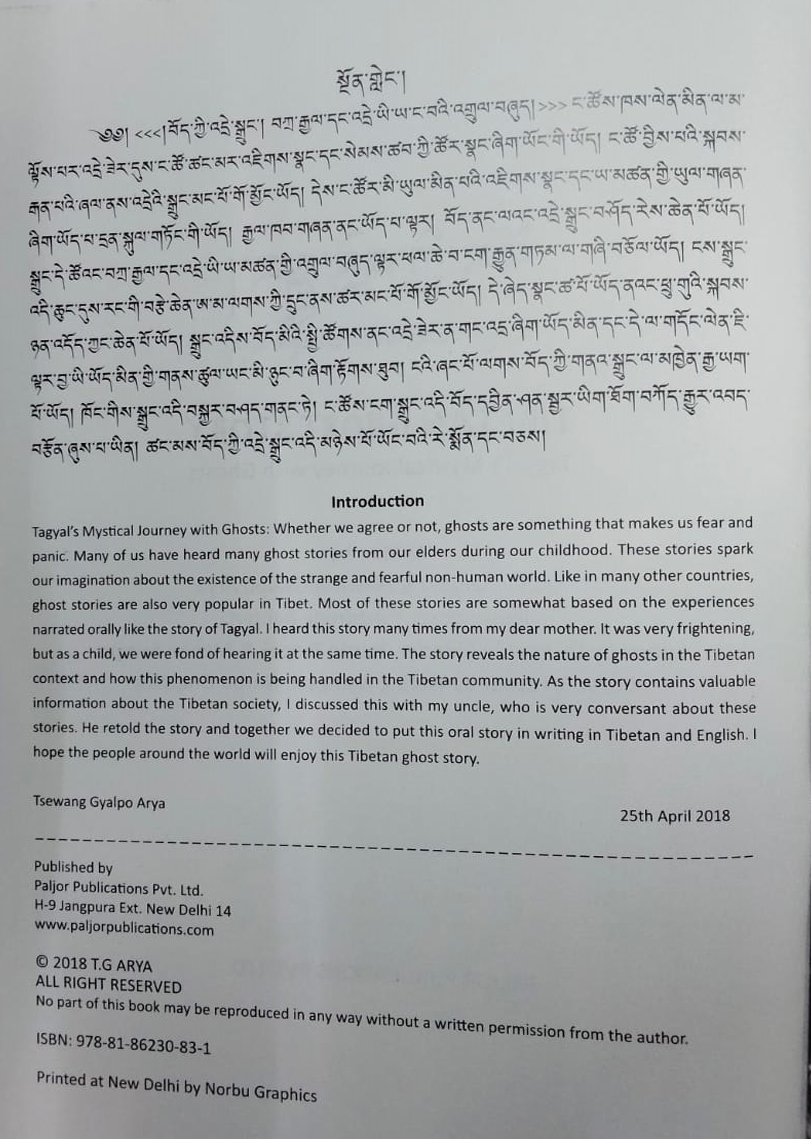 སྔོན་གླེང་།
༄༅། <<<།བོད་ཀྱི་འདྲེ་སྒྲུང་། བཀྲ་རྒྱལ་དང་འདྲེ་ཡི་ཡ་ང་བའི་འགྲུལ་བཞུད།>>> ང་ཚོས་ཁས་ལེན་མིན་ལ་མ་
ལྟོས་པར་འདྲེ་ཟེར་དུས་ང་ཚོ་ཚང་མར་འཇིགས་སྣང་དང་སེམས་ཚབ་ཀྱི་ཚོར་སྣང་ཞིག་ཡོང་གི་ཡོད། ང་ཚོ་བྱིས་པའི་སྐབས་
རྒན་པའི་ཞལ་ནས་འདྲེའི་སྒྲུང་མང་པོ་གོ་མྱོང་ཡོད། དེས་ང་ཚོར་མི་ཡུལ་མིན་པའི་འཇིགས་སྣང་དང་ཡ་མཚན་གྱི་ཡུལ་གཞན་
ཞིག་ཡོད་པ་དྲན་སྐུལ་གཏོང་གི་ཡོད། རྒྱལ་ཁབ་གཞན་ནང་ཡོད་པ་ལྟར། བོད་ནང་ལའང་འདྲེ་སྒྲུང་བཤོད་རེས་ཆེན་པོ་ཡོད།
སྒྲུང་དེ་ཚོའང་བཀྲ་རྒྱལ་དང་འདྲེ་ཡི་ཡ་མཚན་གྱི་འགྲུལ་བཞུད་ལྟར་ཕལ་ཆེ་བ་ངག་རྒྱུན་གཏམ་ལ་གཞི་བཅོལ་ཡོད། ངས་སྒྲུང་
འདི་ཆུང་དུས་རང་གི་བརྩེ་ཆེན་ཨ་མ་ལགས་ཀྱི་དྲུང་ནས་ཚར་མང་པོ་གོ་མྱོང་ཡོད། དེ་ཞེད་སྣང་ཚ་པོ་ཡོད་ནའང་ཕྲུ་གུའི་སྐབས་
ཉན་འདོད་ཀྱང་ཆེན་པོ་ཡོད། སྒྲུང་འདིས་བོད་མིའི་སྤྱི་ཚོགས་ནང་འདྲེ་ཟེར་ན་གང་འདྲ་ཞིག་ཡོད་མིན་དང་དེ་ལ་གདོང་ལེན་ཇི་
ལྟར་བྱ་ཡི་ཡོད་མིན་གྱི་གནས་ཚུལ་ཡང་མི་ཉུང་བ་ཞིག་རྟོགས་ཐུབ། ངའི་ཞང་པོ་ལགས་བོད་ཀྱི་གནའ་སྒྲུང་ལ་མཁྱེན་རྒྱ་ཡག་
པོ་ཡོད། ཁོང་གིས་སྒྲུང་འདི་བསྐྱར་བཤད་གནང་ཏེ། ང་ཚོས་ངག་སྒྲུང་འདི་བོད་དབྱིན་ཤན་སྦྱར་ཡིག་ཐོག་བཀོད་རྒྱུར་འབད་
བརྩོན་ཞུས་པ་ཡིན། ཚང་མས་བོད་ཀྱི་འདྲེ་སྒྲུང་འདི་མཉེས་པོ་ཡོང་བའི་རེ་སྨོན་དང་བཅས།
Introduction
Tagyal's Mystical Journey with Ghosts: Whether we agree or not, ghosts are something that makes us fear and
panic. Many of us have heard many ghost stories from our elders during our childhood. These stories spark
our imagination about the existence of the strange and fearful non-human world. Like in many other countries,
ghost stories are also very popular in Tibet. Most of these stories are somewhat based on the experiences
narrated orally like the story of Tagyal. I heard this story many times from my dear mother. It was very frightening,
but as a child, we were fond of hearing it at the same time. The story reveals the nature of ghosts in the Tibetan
context and how this phenomenon is being handled in the Tibetan community. As the story contains valuable
information about the Tibetan society, I discussed this with my uncle, who is very conversant about these
stories. He retold the story and together we decided to put this oral story in writing in Tibetan and English. I
hope the people around the world will enjoy this Tibetan ghost story.
Tsewang Gyalpo Arya
25th April 2018
Published by
Paljor Publications Pvt. Ltd.
H-9 Jangpura Ext. New Delhi 14
www.paljorpublications.com
© 2018 T.G ARYA
ALL RIGHT RESERVED
No part of this book may be reproduced in any way without a written permission from the author.
ISBN: 978-81-86230-83-1
Printed at New Delhi by Norbu Graphics